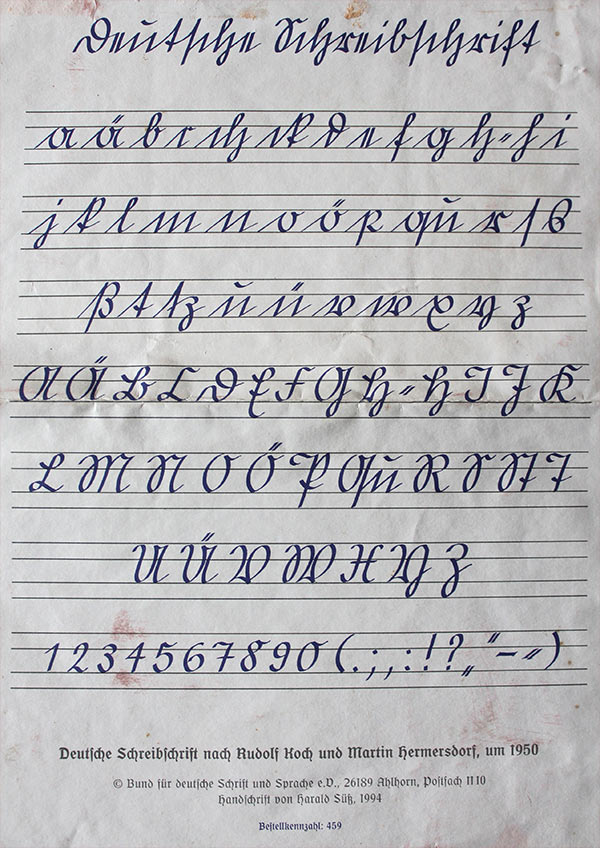 Deutsche Schreibschrift
a ä b c ch ck d e f g h ⸗ h i
j k l m n o ö p qu r ſ s
ß t tz u ü v w x y z
A Ä B C D E F G H ⸗ H I J K
L M N O Ö P Qu R S St T
U Ü V W X Y Z
1 2 3 4 5 6 7 8 9 0 ( . ; , : ! ? „ “ – ⸗ )
Deutsche Schreibschrift nach Rudolf Koch und Martin Hermersdorf, um 1950
© Bund für deutsche Schrift und Sprache e.V., 26189 Ahlhorn, Postfach 1110
Handschrift von Harald Süß, 1994
Bestellkennzahl: 459